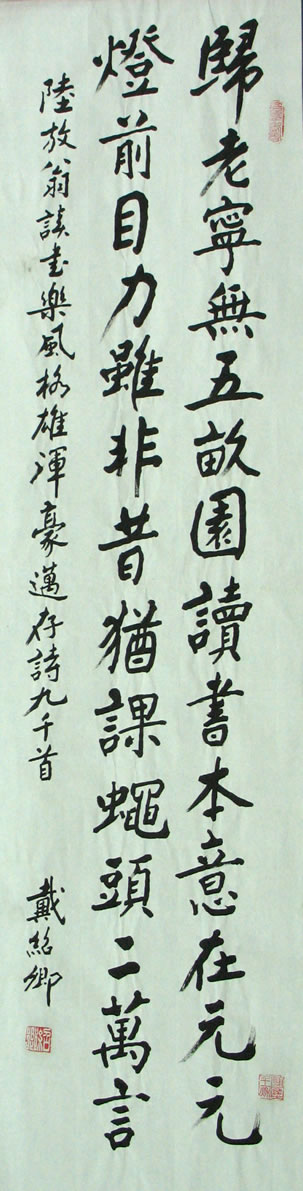 歸老寧無五畝園讀書本意在元元
燈前目力雖非昔猶課蠅頭二萬言
陸放翁讀書樂風格雄渾豪邁存詩九千首
戴紹卿